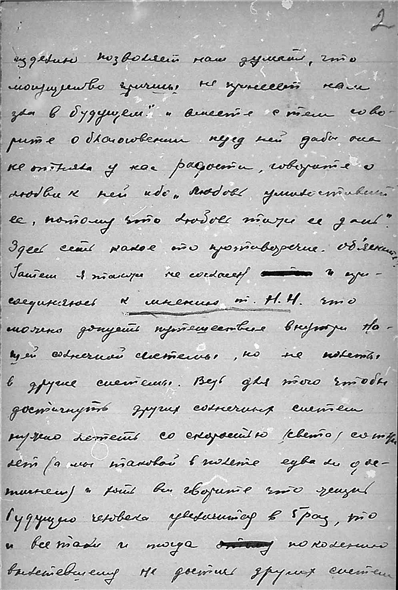 2
изделию позволяет нам думать, что
могущество причины не принесет нам
зла в будущем" и вместе с тем гово-
рите о благоговении перед ней дабы она
не отняла у нас радости, говорите о
любви к ней ибо „Любовь умилостивит
ее, потому что любовь таже ее дань".
Здесь есть какое то противоречие.
Затем я также не согласен и при-
соединяюсь к мнению т. Н.Н. что
можно допустить путешествие внутри на-
шей солнечной системы, но не полеты
в другие системы. Ведь для того чтобы
достигнуть других солнечных систем
нужно лететь со скоростью (света) сотни
лет (а мы таковой в полете едва ли дос-
тигнем) и хоть вы говорите что жизнь
будущего человека увеличится в 5 раз, то
и все таки и тогда поколению
вылетевшему не достичь других систем